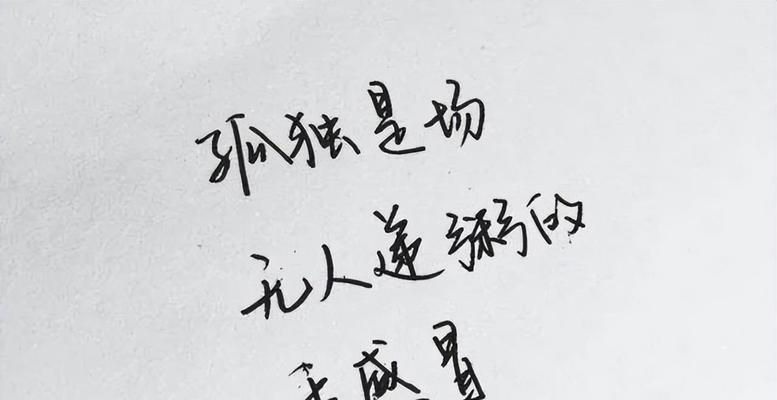 孤独是场
无人递粥的
感冒